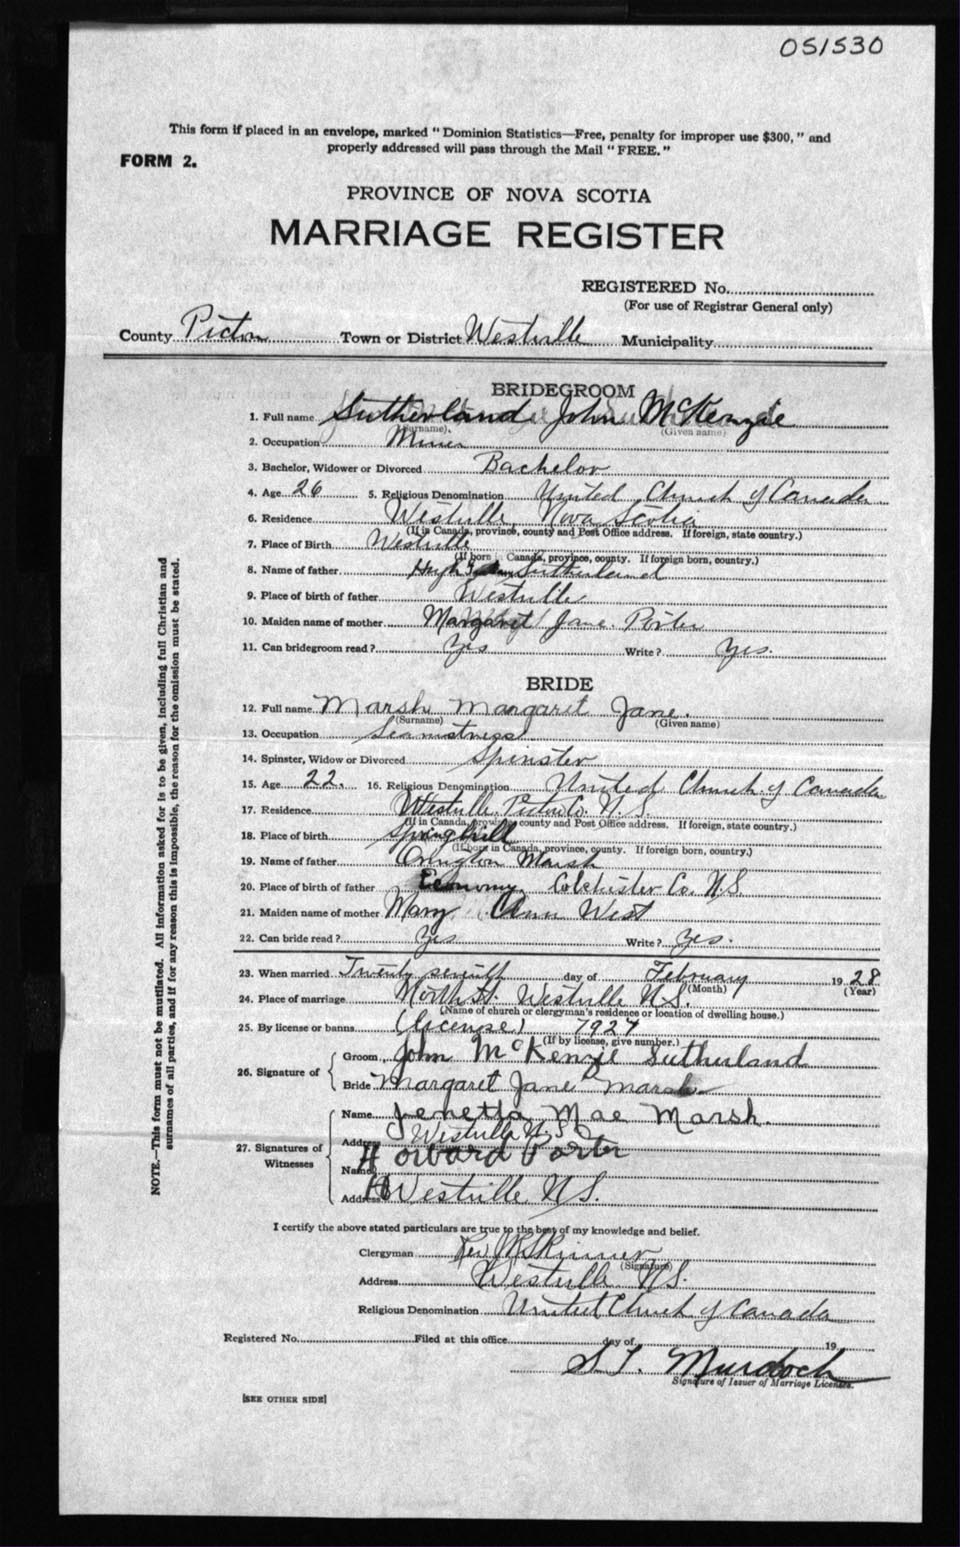 051530
This form if placed in an envelope, marked "Dominion Statistics—Free, penalty for improper use $300," and
properly addressed will pass through the Mail "FREE."
FORM 2.
PROVINCE OF NOVA SCOTIA
MARRIAGE REGISTER
REGISTERED No.
(For use of Registrar General only)
County Pictou Town or District Westville Municipality
BRIDEGROOM
1. Full name Sutherland John McKenzie
(Surname) (Given name)
2. Occupation Miner
3. Bachelor, Widower or Divorced Bachelor
4. Age 26 5. Religious Denomination United Church of Canada
6. Residence Westville, Nova Scotia
(If in Canada, province, county and Post Office address. If foreign, state country.)
7. Place of Birth Westville
(If born in Canada, province, county. If foreign born, country.)
8. Name of father Hugh Sutherland
9. Place of birth of father Westville
10. Maiden name of mother Margaret Jane Porter
11. Can bridegroom read? Yes Write? Yes.
BRIDE
12. Full name Marsh Margaret Jane.
(Surname) (Given name)
13. Occupation Seamstress
14. Spinster, Widow or Divorced Spinster
15. Age 22. 16. Religious Denomination United Church of Canada
17. Residence Westville Pictou Co. N.S.
(If in Canada, province, county and Post Office address. If foreign, state country.)
18. Place of birth Springhill
(If born in Canada, province, county. If foreign born, country.)
19. Name of father Marsh
20. Place of birth of father Economy Colchester Co. N.S.
21. Maiden name of mother Mary Ann West
22. Can bride read? Yes Write? Yes.
23. When married Twenty seventh day of February 1928
(Month) (Year)
24. Place of marriage North St. Westville N.S.
(Name of church or clergyman's residence or location of dwelling house.)
25. By license or banns (license) 7927
(If by license, give number.)
26. Signature of Groom John McKenzie Sutherland
Bride Margaret Jane Marsh
27. Signatures of Witnesses
Name Jenetta Mae Marsh.
Address Westville N.S.
Name Howard Porter
Address Westville N.S.
I certify the above stated particulars are true to the best of my knowledge and belief.
Clergyman Rev Skinner
(Signature)
Address Westville N.S.
Religious Denomination United Church of Canada
Registered No. Filed at this office day of 19
S T. Murdoch
Signature of Issuer of Marriage Licenses.
[SEE OTHER SIDE]
NOTE.—This form must not be mutilated. All information asked for is to be given, including full Christian and
surnames of all parties, and if for any reason this is impossible, the reason for the omission must be stated.